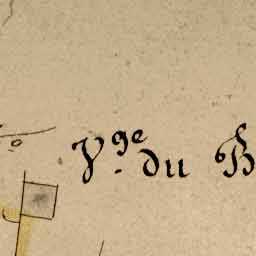 Vge. du B